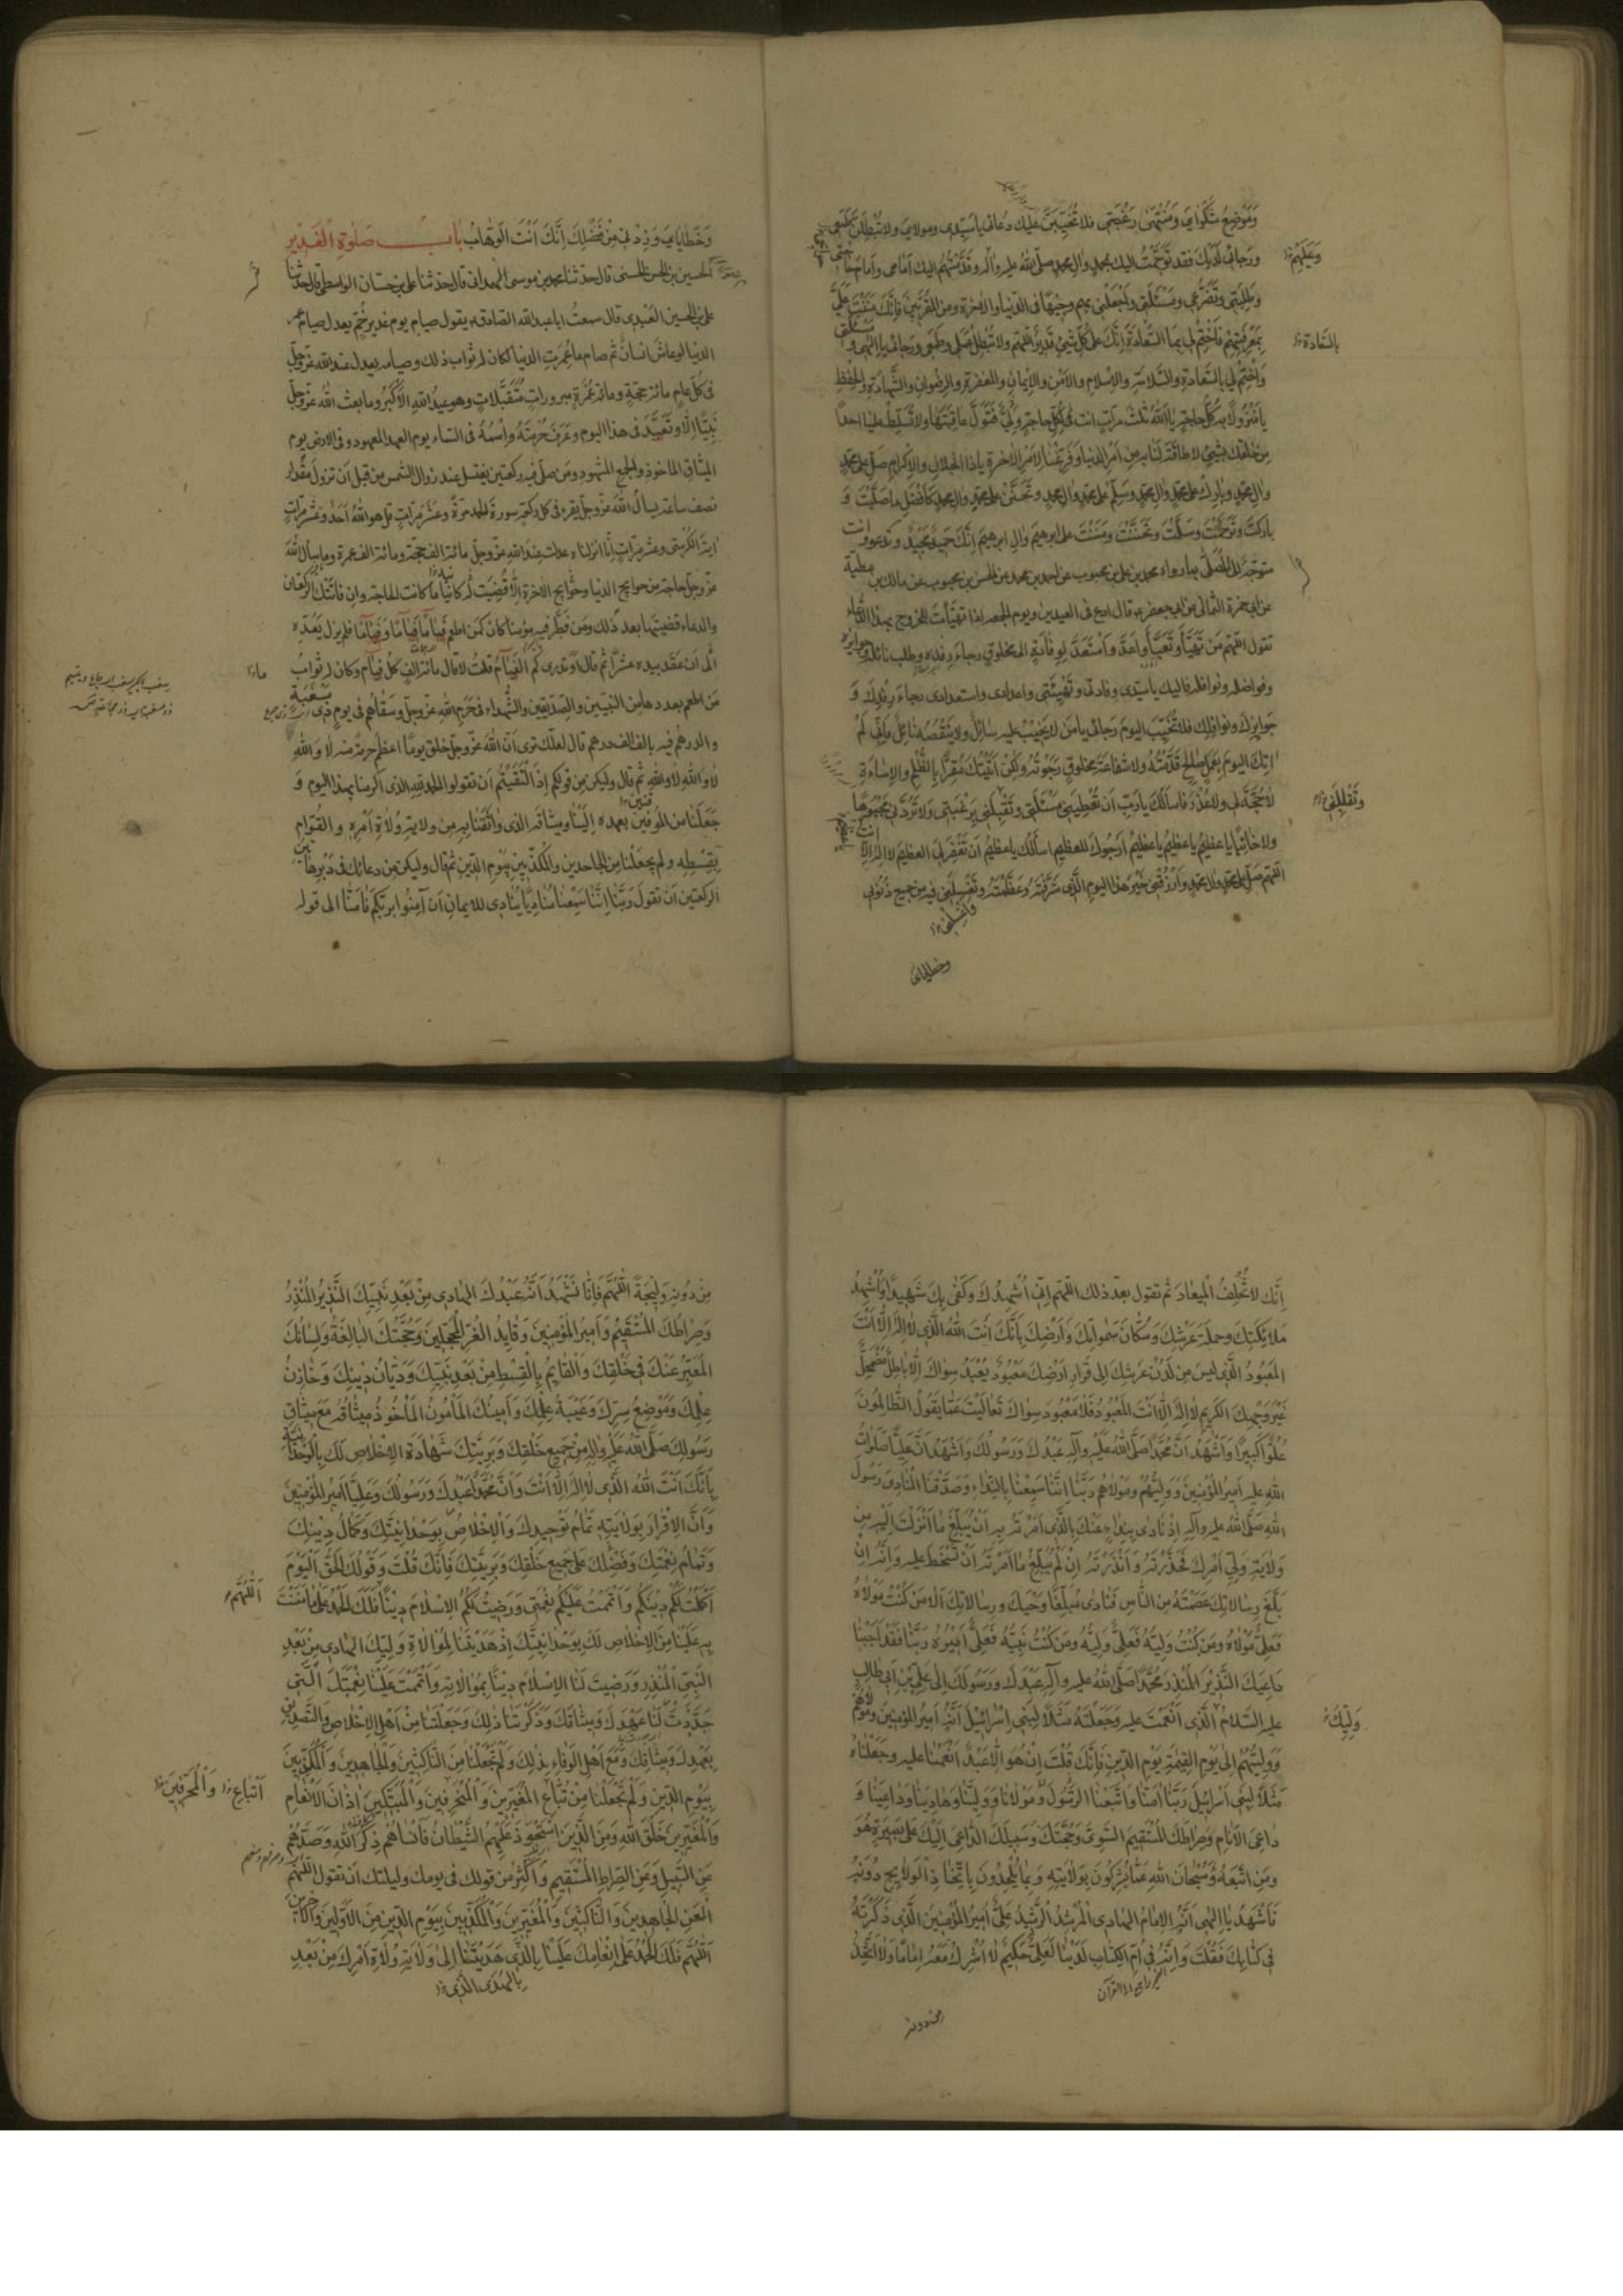 وَمَوْضِعُ شَكْوَايَ وَمُنْتَهَى رَغْبَتِي فلا تُخَيِّبَنَّ عليك دُعائي يا سيّدي ومولاي ولا تُبْطِلَنَّ طَمَعِي
ورَجائي لَدَيْكَ فقد تَوَجَّهْتُ اليك بمحمدٍ والِ محمدٍ صلّى الله عليه واله وقدّمتُهم اليك امامى وامام حاجتى
وَعَلَيْهِمْ
وطلبتي وتضرّعي ومَسْئَلَتي واجْعَلْني بهم وجيهًا في الدنيا والاخرة ومن المقرّبين فانّك مَنَنْتَ عَلَيَّ
بِمَعْرِفَتِهِمْ فَاخْتِمْ لي بها السَّعادَة اِنَّكَ على كلّ شيءٍ قدير اللهم ولا تُبْطِل عَمَلي وطَمَعي ورجائي يا الهي ومسئلتي
بالسَّعَادَة
وَاخْتِمْ لي بالسّعادةِ والسّلامةِ والإسلامِ والأمنِ والإيمانِ والمغفرةِ والرضوانِ والشّهادةِ والحفظِ
يا مَنْزُولًا به كلُّ حاجةٍ يا اَللهُ ثلثَ مرّاتٍ انت لكلّ حاجةٍ ولِيٌّ فتولَّ عافيتَها ولا تسلّط علينا احدًا
مِن خلقك بشيءٍ لا طاقةَ لنا به من امر الدنيا وفرّغنا لأمر الاخرة يا ذا الجلالِ والإكرام صلّ على محمدٍ
والِ محمدٍ وبارِك على محمدٍ والِ محمدٍ وسَلِّمْ على محمدٍ والِ محمدٍ وتَحَنَّنْ على محمدٍ والِ محمدٍ كافضلِ ما صَلَّيْتَ وَ
باركتَ وتَرَحَّمْتَ وسلَّمْتَ وتحنّنْتَ ومَنَنْتَ على ابرهيمَ والِ ابرهيمَ اِنَّكَ حميدٌ مجيدٌ وتدعو وانت
متوجّه الى المُصَلَّى بما رواه محمد بن علي بن محبوب عن احمد بن محمد عن الحسن بن محبوب عن مالك بن عطية
عن ابي حمزة الثمالي عن ابي جعفر قال ادع في العيدين ويوم الجمعه اذا تهيّأت للخروج بهذا الدعاء
تقول اللهم مَن تَهَيَّأَ وتَعَبَّأَ واَعَدَّ واسْتَعَدَّ لِوِفادَةٍ الى مخلوقٍ رجاءَ رِفْدِهِ وطلب نائلِهِ وجوايزه
وفواضله ونوافله فاليك يا سيّدي وِفادتي وتَهْيِئَتي واِعدادي واستعدادي رجاءَ رفدِك وَ
جوايزِك ونوافلِك فلا تُخَيِّب اليومَ رَجائي يا مَن لا يَخيبُ عليه سائلٌ ولا يَنْقُصُه نائلٌ فاِنّي لَمْ
اٰتِكَ اليومَ بعملٍ صالحٍ قَدَّمْتُهُ ولا شفاعةِ مخلوقٍ رَجَوْتُهُ ولكن اَتَيْتُكَ مُقِرًّا بِالظُّلْمِ والإساءةِ
لا حُجَّةَ لي ولا عُذْرَ فاسألُكَ يا ربِّ اَن تُعْطِيَني مَسْئَلَتي وتَقْلِبَني بِرَغْبَتي ولا تَرُدَّني مَجْبُوهًا
وَتَقْلِبَني
ولا خائبًا يا عظيمُ يا عظيمُ يا عظيمُ اَرْجُوكَ للعظيمِ اسألُكَ يا عظيمُ اَن تَغْفِرَ لِيَ العظيمَ لا اله الا انت
اللهم صلّ على محمدٍ والِ محمدٍ وَارْزُقْني خَيْرَ هذا اليومِ الَّذي شَرَّفْتَهُ وعَظَّمْتَهُ وتَغْسِلَني فيه من جميع ذُنُوبي
وَاغْسِلْني
وخطاياى
وَخَطَايَايَ وَزِدْني مِنْ فَضْلِكَ اِنَّكَ اَنْتَ الْوَهَّابُ بابُ صَلٰوةِ الْغَدِيرِ
الحسين بن الحسن الحسني قال حدثنا محمد بن موسى الهمداني قال حدثنا علي بن حسان الواسطي قال حدثنا
علي بن الحسين العَبْدي قال سمعتُ ابا عبد الله الصادق يقول صيام يوم غدير خُمٍّ يعدل صيام عمر
الدنيا لو عاش انسانٌ ثم صام ما عُمِّرَتِ الدنيا لكان له ثواب ذلك وصيامه يعدل عند الله عزّ وجلّ
في كلّ عامٍ مائة حجّةٍ ومائة عُمْرةٍ مبروراتٍ مُتَقَبَّلاتٍ وهو عيدُ اللهِ الأكبرُ وما بعث اللهُ عزّ وجلّ
نبيًّا اِلّا وتَعَيَّدَ في هذا اليوم وعَرَفَ حُرْمَتَهُ واسمُهُ في السماء يوم العهد المعهود وفي الارض يوم
الميثاق المأخوذ والجمع المشهود ومَن صلّى فيه ركعتين يغتسل عند زوال الشمس من قبل ان تزول مقدار
نصف ساعة يسألُ اللهَ عزّ وجلّ يقرء في كل ركعة سورة الحمد مرّةً وعشر مرّاتٍ قل هو الله احدٌ وعشر مرّاتٍ
اية الكرسي وعشر مرّاتٍ انّا انزلناه عدلت عندَ اللهِ عزّ وجلّ مائة الف حجّة ومائة الف عمرة وما سأل اللهَ
عزّ وجلّ حاجة من حوايج الدنيا وحوايج الآخرة اِلّا قُضِيَت له كائنًا ما كانت الحاجة وان فاتتك الركعتان
والدعاء قضيتها بعد ذلك ومَن فطّر فيه مؤمنًا كان كمن اطعم فِئامًا وفِئامًا وفِئامًا فلم يزل يَعُدّه
الى اَن عقد بيده عشرًا ثم قال اَوَتدري كم الفِئامُ قلتُ لا قال مائة الفٍ كلُّ فِئامٍ وكان له ثوابُ
مَن اطعم بعددها من النبيّين والصِّدِّيقين والشهداء في حَرَمِ اللهِ عزّ وجلّ وسَقاهُم في يومٍ ذي مَسْغَبَةٍ
والدرهم فيه بالف الف درهم قال لعلّك ترى اَنّ الله عزّ وجلّ خلق يومًا اعظم حرمةً منه لا وَاللهِ
لا وَاللهِ لا وَاللهِ ثم قال وليكن من قولِكم اِذَا الْتَقَيْتُمْ اَن تقولوا الحمد لله الذي اكرمنا بهذا اليوم وَ
جَعَلَنا من المُوفِينَ بعهده اِلَيْنا وميثاقه الذي واثَقَنا به من ولاية وُلاةِ اَمْرِهِ والقُوّامِ
بِقِسْطِهِ ولم يجعلنا من الجاحدين والمكذّبين بيومِ الدّينِ ثم قال وليكن من دعائك في دبر هاتين
الركعتين اَن تقول رَبَّنا اِنَّنا سَمِعْنا مُناديًا يُنادي للايمانِ اَنْ آمِنُوا بِرَبِّكُمْ فَآمَنّا الى قوله
اِنَّكَ لا تُخْلِفُ الْمِيعادَ ثم تقول بعد ذلك اللهم اِنّي اُشْهِدُكَ وَكَفى بِكَ شَهِيدًا وَاُشْهِدُ
مَلائِكَتِكَ وحملةَ عَرْشِكَ وَسُكّانَ سَمٰواتِكَ وَاَرْضِكَ بِاَنَّكَ اَنْتَ اللهُ الَّذي لا اِلهَ اِلّا اَنْتَ
المَعبُودُ الَّذي ليس مِن لَدُنْ عرشِكَ اِلى قَرارِ اَرْضِكَ مَعْبُودٌ يُعْبَدُ سِواكَ اِلّا باطِلٌ مُضْمَحِلٌّ
غَيْرَ وَجْهِكَ الكريمِ لا اِلهَ اِلّا اَنْتَ المَعْبُودُ فَلا مَعْبُودَ سِواكَ تَعالَيْتَ عَمّا يَقُولُ الظّالِمُونَ
عُلُوًّا كَبيرًا وَاَشْهَدُ اَنَّ مُحَمَّدًا صَلَّى اللهُ عَلَيْهِ وَآلِهِ عَبْدُكَ وَرَسُولُكَ وَاَشْهَدُ اَنَّ عَلِيًّا صَلَواتُ
اللهِ عليه اَميرُ المُؤْمِنينَ وَوَلِيُّهُمْ وَمَوْلاهُمْ رَبَّنا اِنَّنا سَمِعْنا بِالنِّداءِ وَصَدَّقْنَا الْمُنادِيَ رَسُولَ
اللهِ صَلَّى اللهُ عليهِ وآلِهِ اِذْ نادى بِنِداءٍ عَنْكَ بِالَّذي اَمَرْتَهُ بِهِ اَنْ يُبَلِّغَ ما اَنْزَلْتَ اِلَيْهِ مِن
وَلايَةِ وَلِيِّ اَمْرِكَ فَحَذَّرْتَهُ وَاَنْذَرْتَهُ اِنْ لَمْ يُبَلِّغْ ما اَمَرْتَهُ اَنْ تَسْخَطَ عليهِ وَاَنَّهُ اِنْ
بَلَّغَ رِسالاتِكَ عَصَمْتَهُ مِنَ النّاسِ فَنادى مُبَلِّغًا وَحْيَكَ ورِسالاتِكَ اَلا مَنْ كُنْتُ مَوْلاهُ
فَعَلِيٌّ مَوْلاهُ وَمَنْ كُنْتُ وَلِيَّهُ فَعَلِيٌّ وَلِيُّهُ ومَن كُنْتُ نَبِيَّهُ فَعَلِيٌّ اَميرُهُ رَبَّنا فَقَدْ اَجَبْنا
داعِيَكَ النَّذيرَ المُنْذِرَ مُحَمَّدًا صَلَّى اللهُ عليهِ وآلِهِ عَبْدَكَ وَرَسُولَكَ اِلى عَلِيِّ بْنِ اَبي طالِبٍ
عليهِ السَّلامُ الَّذي اَنْعَمْتَ عليهِ وَجَعَلْتَهُ مَثَلًا لِبَني اِسْرائيلَ اَنَّهُ اَميرُ المؤمنينَ ومَوْلاهُمْ
وَلِيُّكَ
وَوَلِيُّهُمْ اِلى يَوْمِ القِيٰمَةِ يَوْمِ الدّينِ فَاِنَّكَ قُلْتَ اِنْ هُوَ اِلّا عَبْدٌ اَنْعَمْنا عليهِ وجَعَلْناهُ
مَثَلًا لِبَني اِسْرائيلَ رَبَّنا آمَنّا وَاتَّبَعْنَا الرَّسُولَ وَمَوْلانا وَوَلِيَّنا وهادِيَنا وداعِيَنا وَ
داعِيَ الأنامِ وَصِراطَكَ المُسْتَقيمَ السَّوِيَّ وَحُجَّتَكَ وَسَبيلَكَ الدّاعِيَ اِلَيْكَ عَلى بَصيرَةٍ هُوَ
ومَنِ اتَّبَعَهُ وَسُبْحانَ اللهِ عَمّا يُشْرِكُونَ بِوَلايَتِهِ وَبِما يُلْحِدُونَ بِاتِّخاذِ الوَلائِجِ دُونَهُ
فَاَشْهَدُ يا اِلٰهي اَنَّهُ الاِمامُ الهادي المُرْشِدُ الرَّشيدُ عَلِيٌّ اَميرُ المُؤْمِنينَ الَّذي ذَكَرْتَهُ
في كِتابِكَ فَقُلْتَ وَاِنَّهُ في اُمِّ الكِتابِ لَدَيْنا لَعَلِيٌّ حَكيمٌ لا اُشْرِكُ مَعَهُ اِمامًا وَلا اَتَّخِذُ
من دونه
مِنْ دُونِهِ وَليجَةً اللّهُمَّ فَاِنّا نَشْهَدُ اَنَّهُ عَبْدُكَ الهادي مِنْ بَعْدِ نَبِيِّكَ النَّذيرُ المُنْذِرُ
وَصِراطُكَ المُسْتَقيمُ وَاَميرُ المُؤْمِنينَ وَقايِدُ الغُرِّ المُحَجَّلينَ وَحُجَّتُكَ البالِغَةُ وَلِسانُكَ
المُعَبِّرُ عَنْكَ في خَلْقِكَ وَالقائِمُ بِالْقِسْطِ مِنْ بَعْدِ نَبِيِّكَ وَدَيّانُ دينِكَ وَخازِنُ
عِلْمِكَ وَمَوْضِعُ سِرِّكَ وَعَيْبَةُ عِلْمِكَ وَاَمينُكَ المَأْمُونُ المَأْخُوذُ ميثاقُهُ مَعَ ميثاقِ
رَسُولِكَ صَلَّى اللهُ عَلَيْهِ وَآلِهِ مِنْ جَميعِ خَلْقِكَ وَبَرِيَّتِكَ شَهادَةَ الاِخْلاصِ لَكَ بِالوَحْدانِيَّةِ
بِاَنَّكَ اَنْتَ اللهُ الَّذي لا اِلهَ اِلّا اَنْتَ وَاَنَّ مُحَمَّدًا عَبْدُكَ وَرَسُولُكَ وَعَلِيًّا اَميرُ المُؤْمِنينَ
وَاَنَّ الاِقْرارَ بِوَلايَتِهِ تَمامُ تَوْحيدِكَ وَالاِخْلاصُ بِوَحْدانِيَّتِكَ وَكَمالُ دينِكَ
وَتَمامُ نِعْمَتِكَ وَفَضْلِكَ عَلى جَميعِ خَلْقِكَ وَبَرِيَّتِكَ فَاِنَّكَ قُلْتَ وَقَوْلُكَ الحَقُّ اَلْيَوْمَ
اَكْمَلْتُ لَكُمْ دينَكُمْ وَاَتْمَمْتُ عَلَيْكُمْ نِعْمَتي وَرَضيتُ لَكُمُ الاِسْلامَ دينًا فَلَكَ الحَمْدُ عَلى ما مَنَنْتَ
اَللّهُمَّ
بِهِ عَلَيْنا مِنَ الاِخْلاصِ لَكَ بِوَحْدانِيَّتِكَ اِذْ هَدَيْتَنا لِمُوالاةِ وَلِيِّكَ الهادي مِنْ بَعْدِ
النَّبِيِّ المُنْذِرِ وَرَضيتَ لَنا الاِسْلامَ دينًا بِمُوالاتِهِ وَاَتْمَمْتَ عَلَيْنا نِعْمَتَكَ الَّتي
جَدَّدْتَ لَنا عَهْدَكَ وَميثاقَكَ وَذَكَّرْتَنا ذلِكَ وَجَعَلْتَنا مِنْ اَهْلِ الاِخْلاصِ والتَّصْديقِ
بِعَهْدِكَ وَميثاقِكَ وَمِنْ اَهْلِ الوَفاءِ بِذلِكَ وَلَمْ تَجْعَلْنا مِنَ النّاكِثينَ وَالجاحِدينَ وَالمُكَذِّبينَ
بِيَوْمِ الدّينِ وَلَمْ تَجْعَلْنا مِنْ تُبّاعِ المُغَيِّرينَ وَالمُنْحَرِفينَ وَالمُبَتِّكينَ آذانَ الأنْعامِ
اَتْباعِ وَالْمُحَرِّفينَ
وَالمُغَيِّرينَ خَلْقَ اللهِ وَمِنَ الَّذينَ اسْتَحْوَذَ عَلَيْهِمُ الشَّيْطانُ فَاَنْساهُمْ ذِكْرَ اللهِ وَصَدَّهُمْ
عَنِ السَّبيلِ وَعَنِ الصِّراطِ المُسْتَقيمِ وَاَكْثِرْ من قولك في يومك وليلتك اَن تقول اللّهُمَّ
الْعَنِ الجاحِدينَ وَالنّاكِثينَ وَالمُغَيِّرينَ وَالمُكَذِّبينَ بِيَوْمِ الدّينِ مِنَ الأوَّلينَ وَالآخِرينَ
اَللّهُمَّ فَلَكَ الحَمْدُ عَلى اِنْعامِكَ عَلَيْنا بِالَّذي هَدَيْتَنا اِلى وَلايَةِ وُلاةِ اَمْرِكَ مِنْ بَعْدِ
بِالهُدَى الَّذي